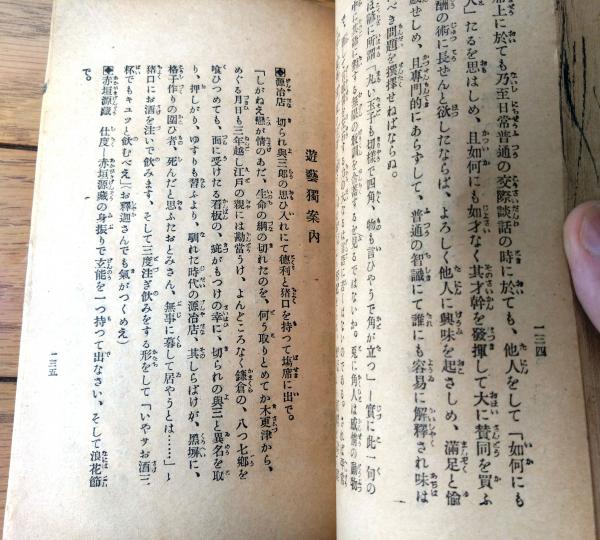 席上に於ても乃至日常普通の交際談話の時に於ても、他人をして「如何にも
人」たるを思はしめ、且如何にも如才なく其才幹を發揮して大に賛同を買ふ
酬の術に長せんと欲したならば、よろしく他人に興味を起さしめ、滿足と愉
感せしめ、且專門的にあらずして、普通の智識にて誰にも容易に解釋され味は
べき問題を撰擇せねばならぬ。
は諺に所謂「丸い玉子も切樣で四角、物も言ひやうで角が立つ」―實に此一句の
一三四
遊藝獨案內
◆源治店 切られ與三郎の思ひ入れにて德利と猪口を持つて塲席に出で。
「しがねえ戀が情のあだ、生命の綱の切れたのを、何う取りとめてか木更津から、
めぐる月日も三年越し江戶の親には勘當うけ、よんどころなく鎌倉の、八つ七鄕を
喰ひつめても、面に受けたる看板の、疵がもつけの幸に、切られの與三と異名を取
り、押しがり、ゆすりも習ふより、馴れた時代の源治店、其しらばけが、黑塀に、
格子作りの圍ひ者、死んだと思ふたおとみさん、無事に暮して居やうとは……」―
猪口にお酒を注いで飮みます、そして三度注ぎ飮みをする形をして「いやサお酒三
杯でもキユツと飮むべえ」(お釋迦さんでも氣がつくめえ)
◆赤垣源藏 仕度―赤垣源藏の身振りで玄能を一つ持つて出なさい、そして浪花節
で。
一三五